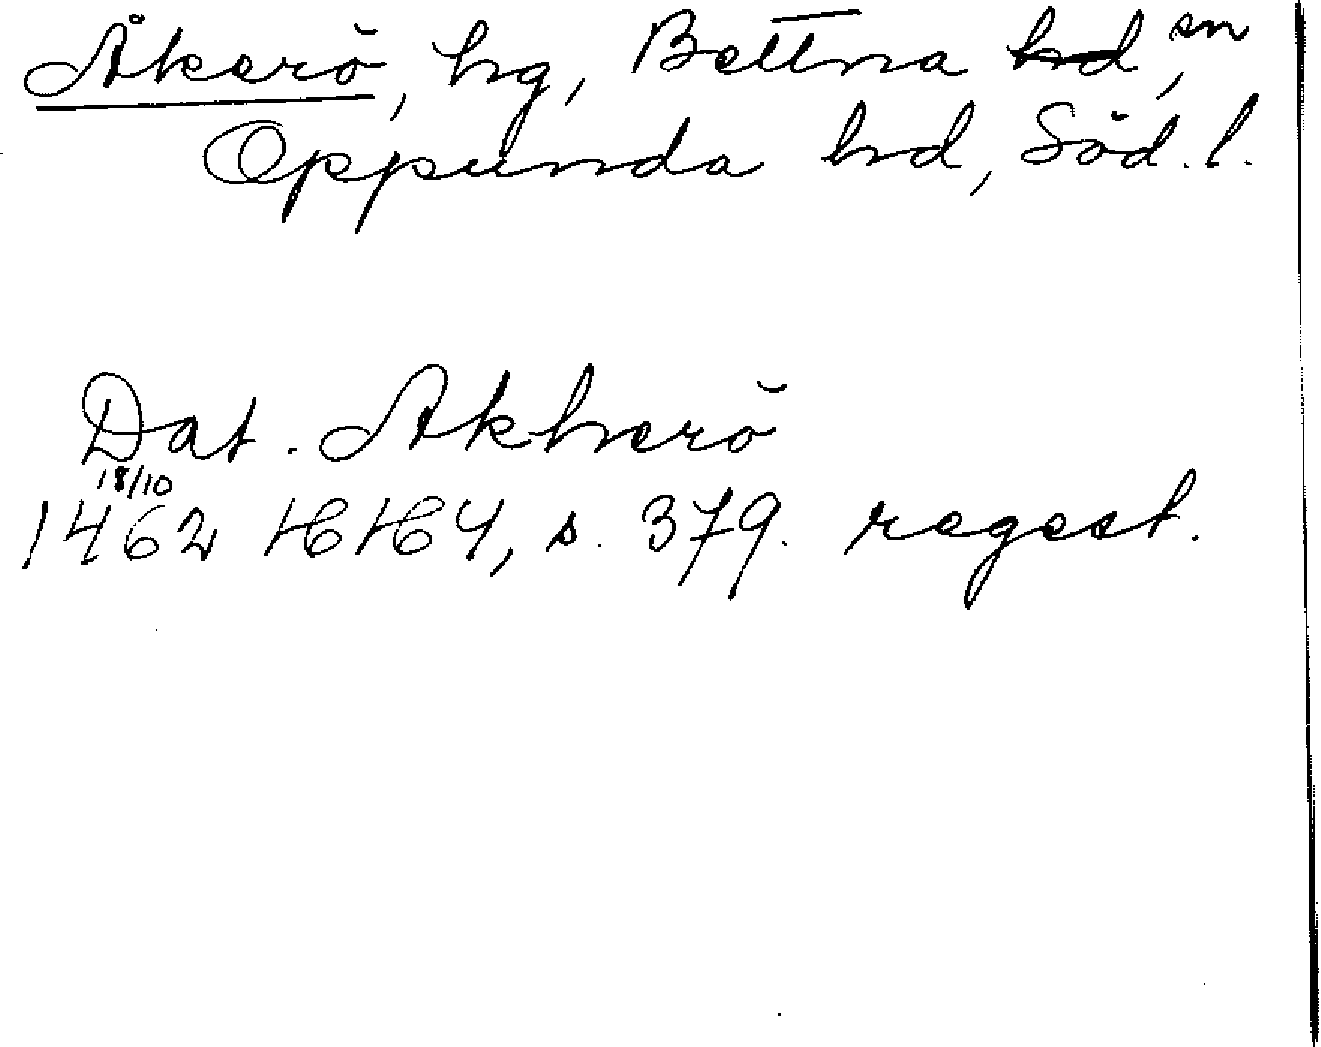 Åkerö, hg, Bettna hd, sn
Oppunda hd, Söd. l.
Dat. Akherö
18/10
1462 HH 4, s. 379. regest.